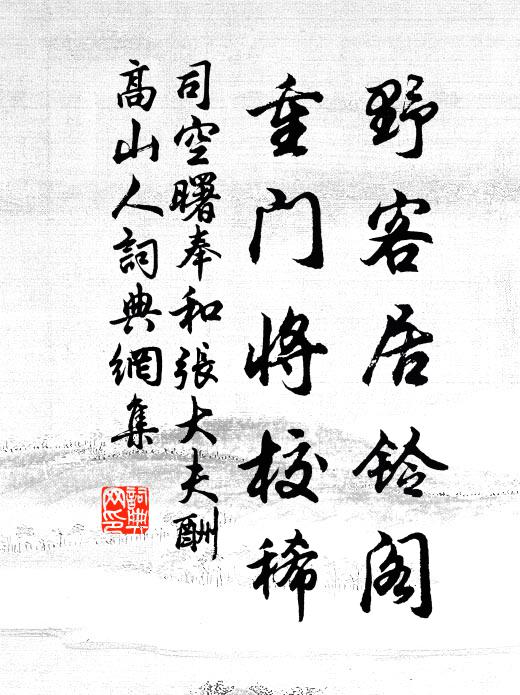 野客居铃阁
重门将校稀
司空曙奉和張大夫酬
高山人詞典網集
詞典网印